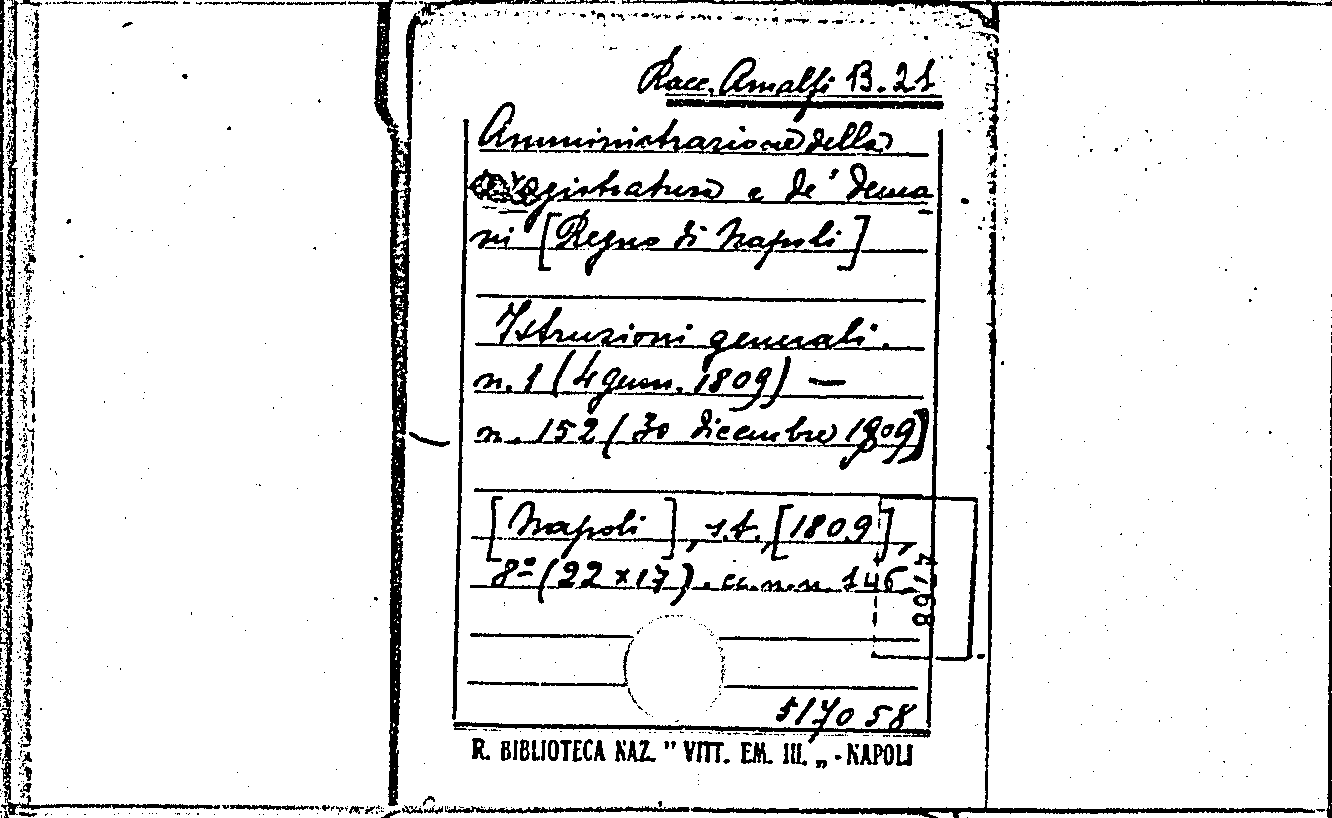 Racc. Amalfi B. 21
Amministrazione della
Registratura e de' dema
ni [Regno di Napoli]
Istruzioni generali.
n. 1 (4 genn. 1809) —
n. 152 (30 dicembre 1809)
[Napoli], s.t., [1809],
8º (22 x 17). cc. n.n. 146.
4168
517058
R. BIBLIOTECA NAZ. " VITT. EM. III. „ - NAPOLI